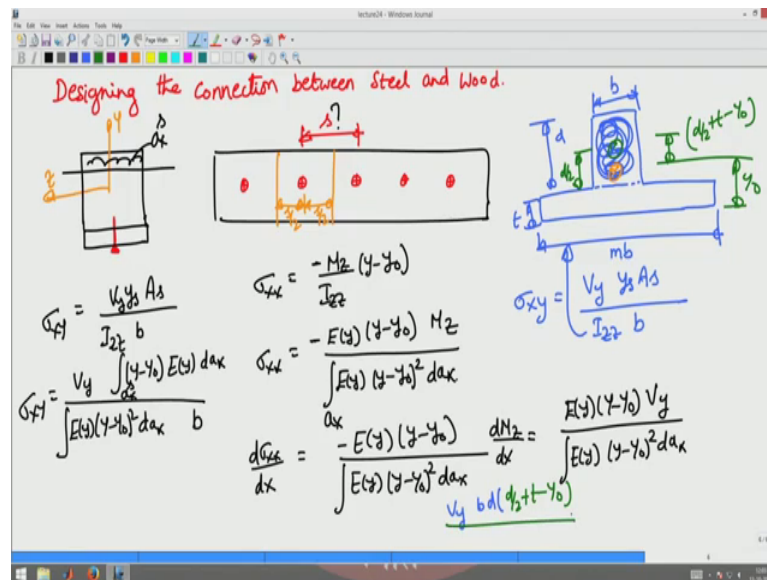 lecture24 - Windows Journal
File Edit View Insert Actions Tools Help
Page Width
B I
Designing the connection between Steel and Wood.
y
s
ax
z
s?
s/2
s/2
b
d
d/2
(d/2+t-y₀)
y₀
t
mb
σxy = Vy ys As / Izz b
σxy = Vy ∫ax^s (y-y₀) E(y) dax / ∫E(y)(y-y₀)² dax b
σxx = -Mz/Izz (y-y₀)
σxx = -E(y) (y-y₀) Mz / ∫ax E(y) (y-y₀)² dax
dσxx/dx = -E(y) (y-y₀) / ∫E(y) (y-y₀)² dax dMz/dx = E(y)(y-y₀) Vy / ∫E(y) (y-y₀)² dax
σxy = Vy ys As / Izz b
Vy bd(d/2+t-y₀)